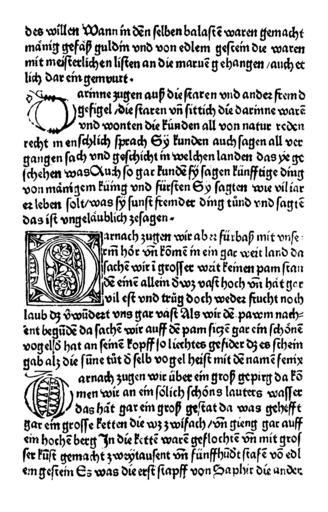 des willen Wann in den selben balasten waren gemacht
mänig gefäß guldin vnd von edlem gestein die waren
mit meisterlichen listen an die mauren gehangen / auch et
lich dar ein gemurt.
Darinne zugen auß die staren vnd ander fremd
gefigel / die staren vn̄ sittich die darinne waren
vnd wonten die kunden all von natur reden
recht menschlich sprach Sy kunden auch sagen all ver
gangen sach vnd geschicht in welchen landen das ye ge
schehen was Auch so gar kunden sy sagen künfftige ding
von mänigem küng vnd fürsten Sy sagten wie vil iar
er leben solt / was sy sunst fremder ding tünd vnd sagtē
das ist vngeläublich zesagen.
Darnach zugen wir aber fürbaß mit vnse
rm hör vn̄ komē in ein gar weit land da
sahē wir i grosser weit keinen pam stan
dē einē allein d wz vast hoch vn̄ hāt gar
vil est vnd trüg doch weder frucht noch
laub dz v̄wūdert vns gar vast Als wir dē pawm nach-
ent begūdē da sachē wir auff dē pam sitzē gar ein schönē
vogel d hāt an seinē kopff so liechtes gefider dz es schein
gab alz die sūne tüt d selb vogel heist mit dē namē fenix
Darnach zugen wir über ein groß gepirg da kō
men wir an ein sölich schöns lauters wasser
das hāt gar ein groß gestat da was gehefft
gar ein grosse ketten die wz zwifach / vn̄ gieng gar auff
ein hochē berg In die kettē warē geflochtē vn̄ mit gros
ser kūst gemacht zweytausent vn̄ fünffhūdt stafē vō edl
em gestein Es was die erst stapff von Saphir die ander